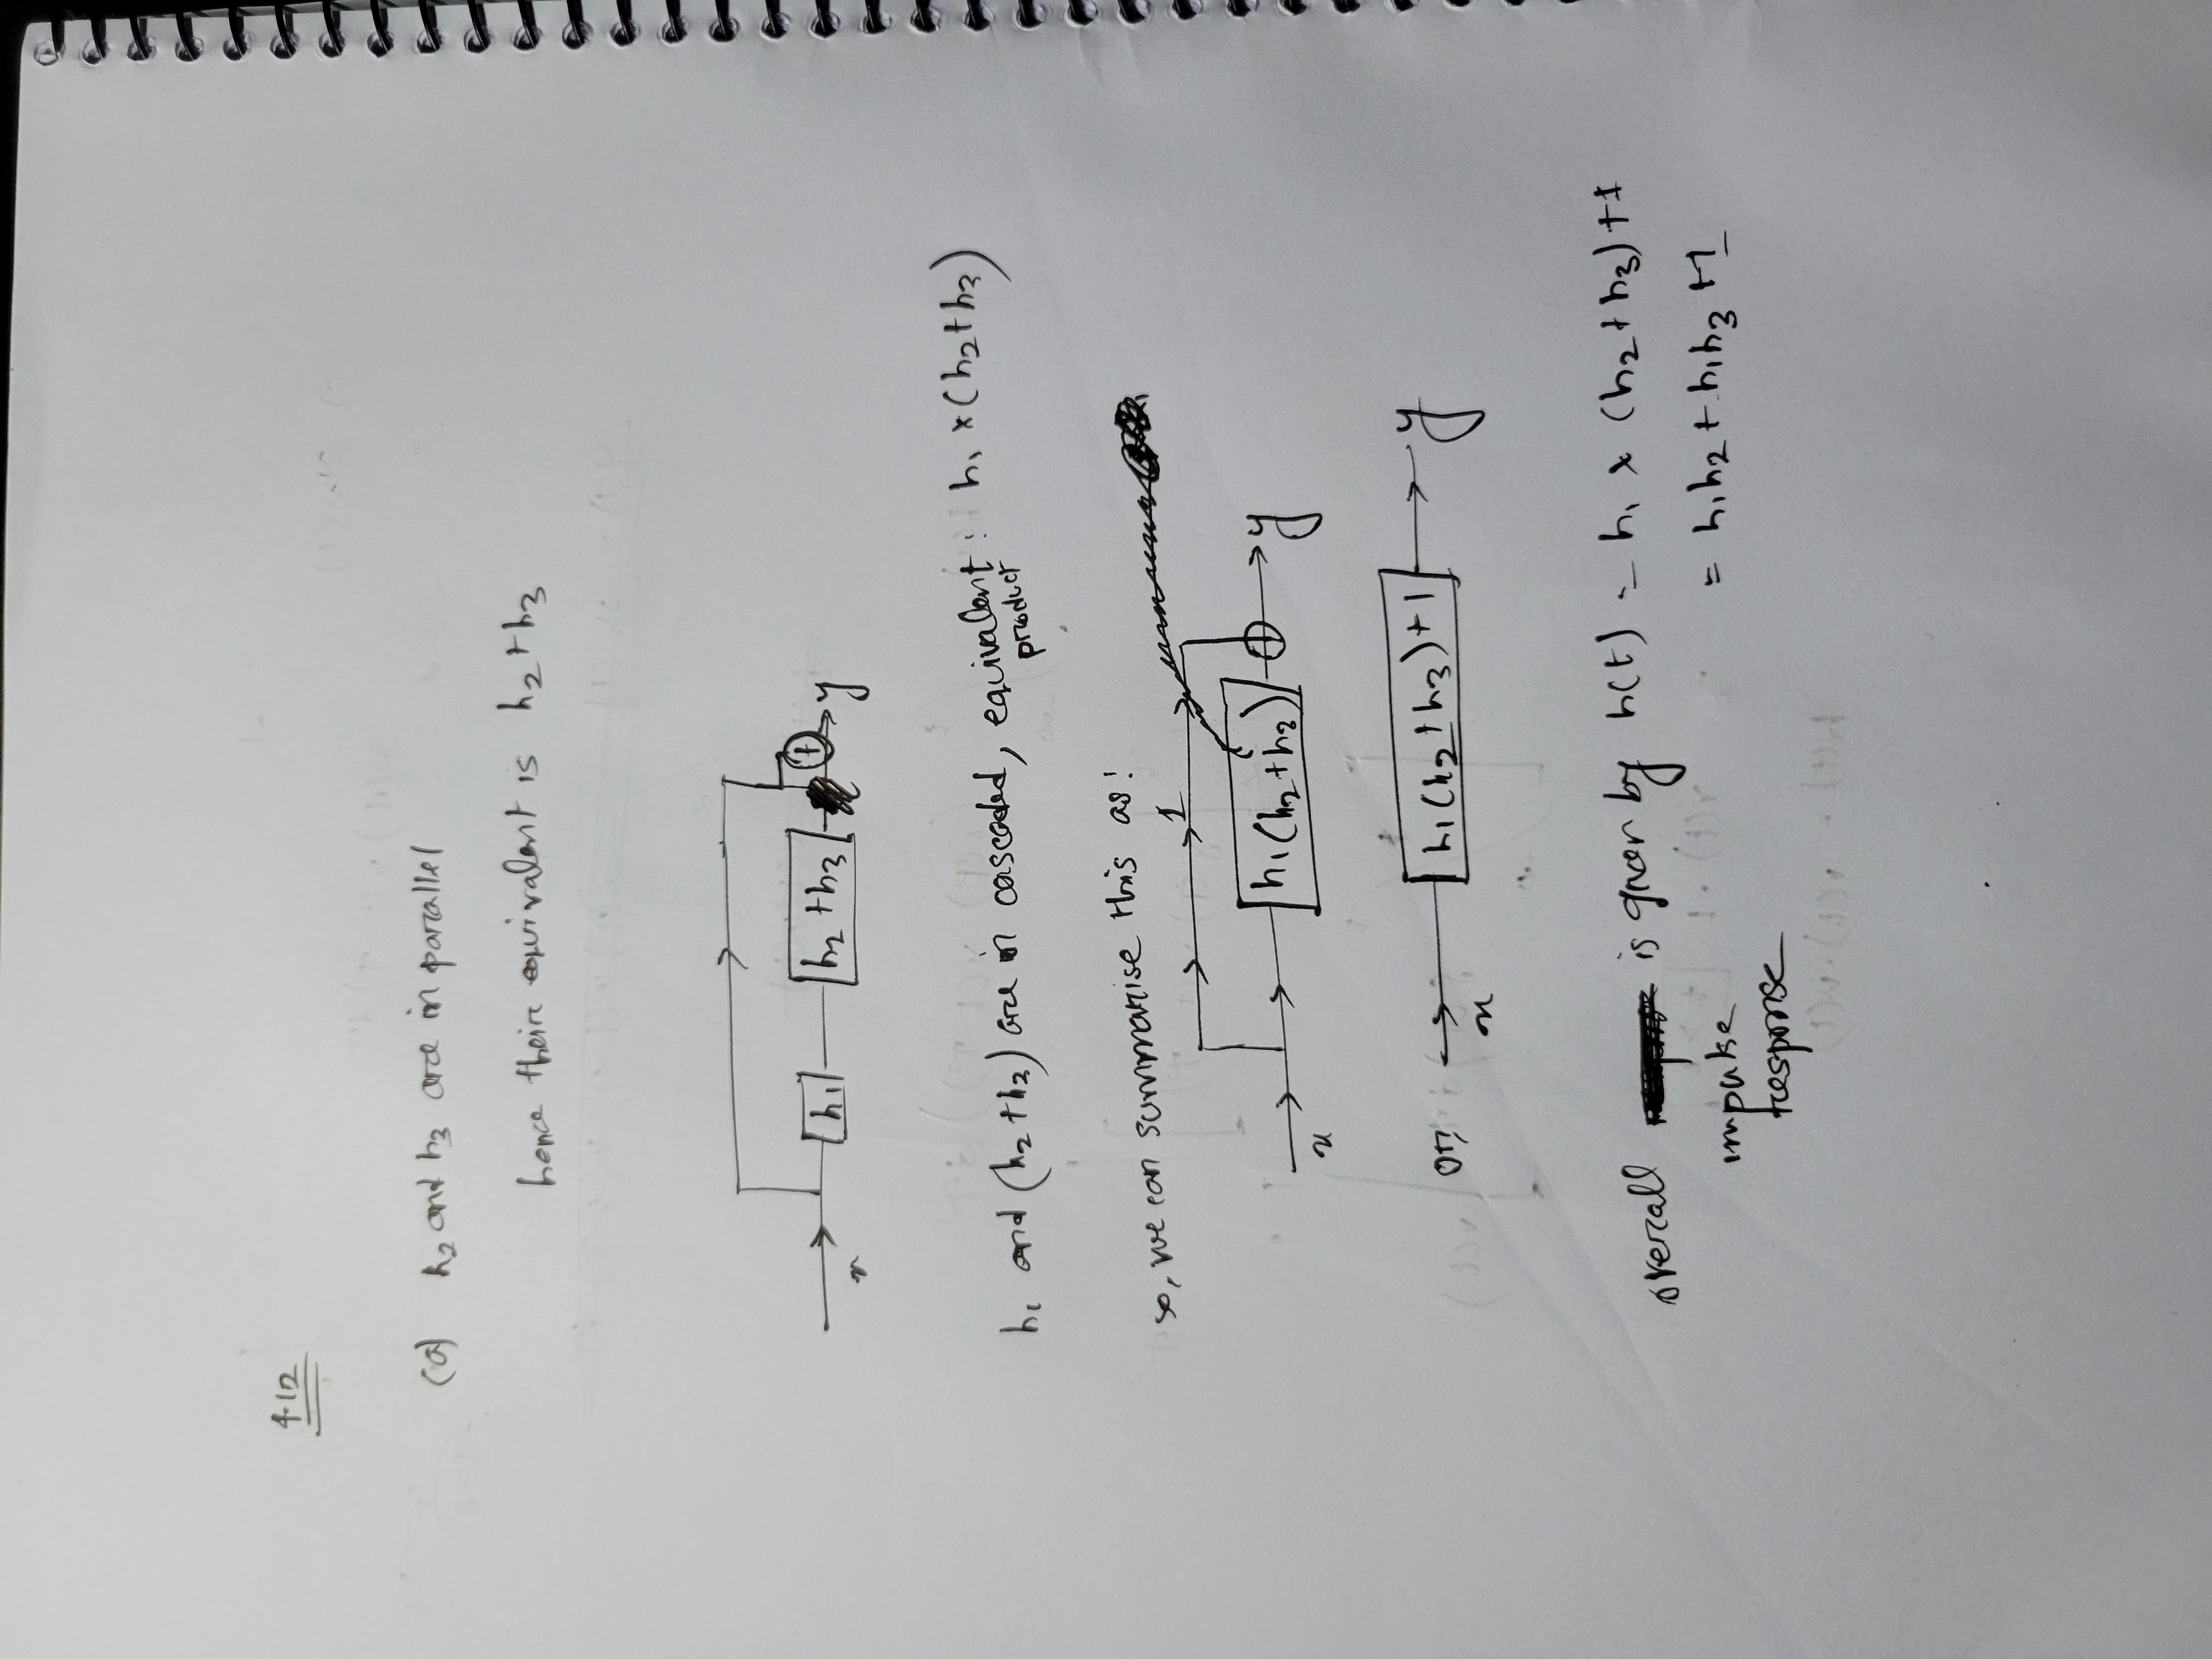 4.12
(a) h₂ and h₃ are in parallel
hence their equivalent is h₂ + h₃
h₁
h₂ + h₃
+
x
y
h₁ and (h₂ + h₃) are in cascaded, equivalent : h₁ × (h₂ + h₃)
product
so, we can summarise this as :
1
h₁ (h₂ + h₃)
+
y
x
or,
h₁ (h₂ + h₃) + 1
y
x
overall is given by h(t) = h₁ × (h₂ + h₃) + 1
impulse
response
= h₁h₂ + h₁h₃ + 1